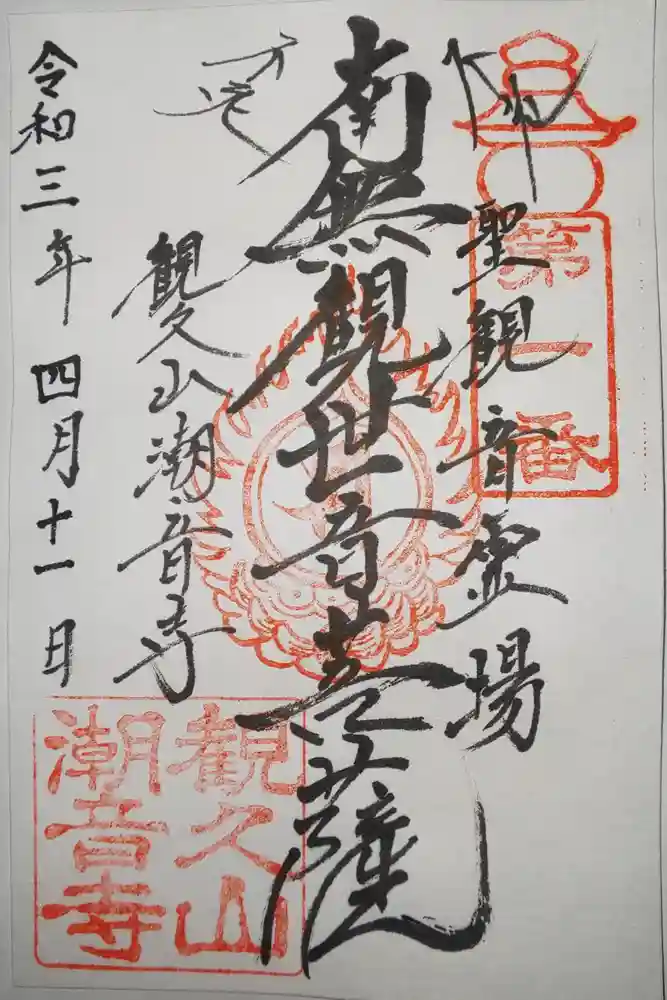 奉拝
第一番
聖観音霊場
南無観世音菩薩
観久山潮音寺
令和三年四月十一日
観久山
潮音寺